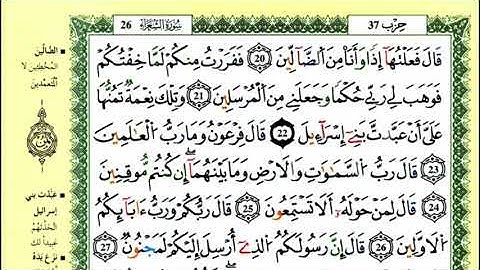 حزب 37
سورة الشعراء 26
قال فعلتها إذا وأنا من الضالين 20 ففررت منكم لما خفتكم
فوهب لي ربي حكما وجعلني من المرسلين 21 وتلك نعمة تمنها
علي أن عبدت بني إسرائيل 22 قال فرعون وما رب العالمين
23 قال رب السماوات والأرض وما بينهما إن كنتم موقنين
24 قال لمن حوله ألا تستمعون 25 قال ربكم ورب ءابائكم
الأولين 26 قال إن رسولكم الذي أرسل إليكم لمجنون 27
الضالين
المخطئين لا
المتعمدين
عبدت بني
إسرائيل
اتخذتهم
عبيدا لك
نزع يده